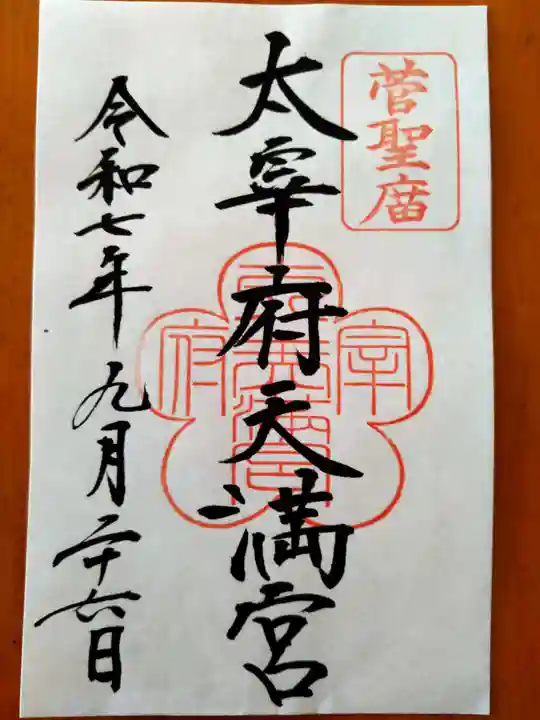 菅聖庿
太宰府天満宮
令和七年九月二十六日